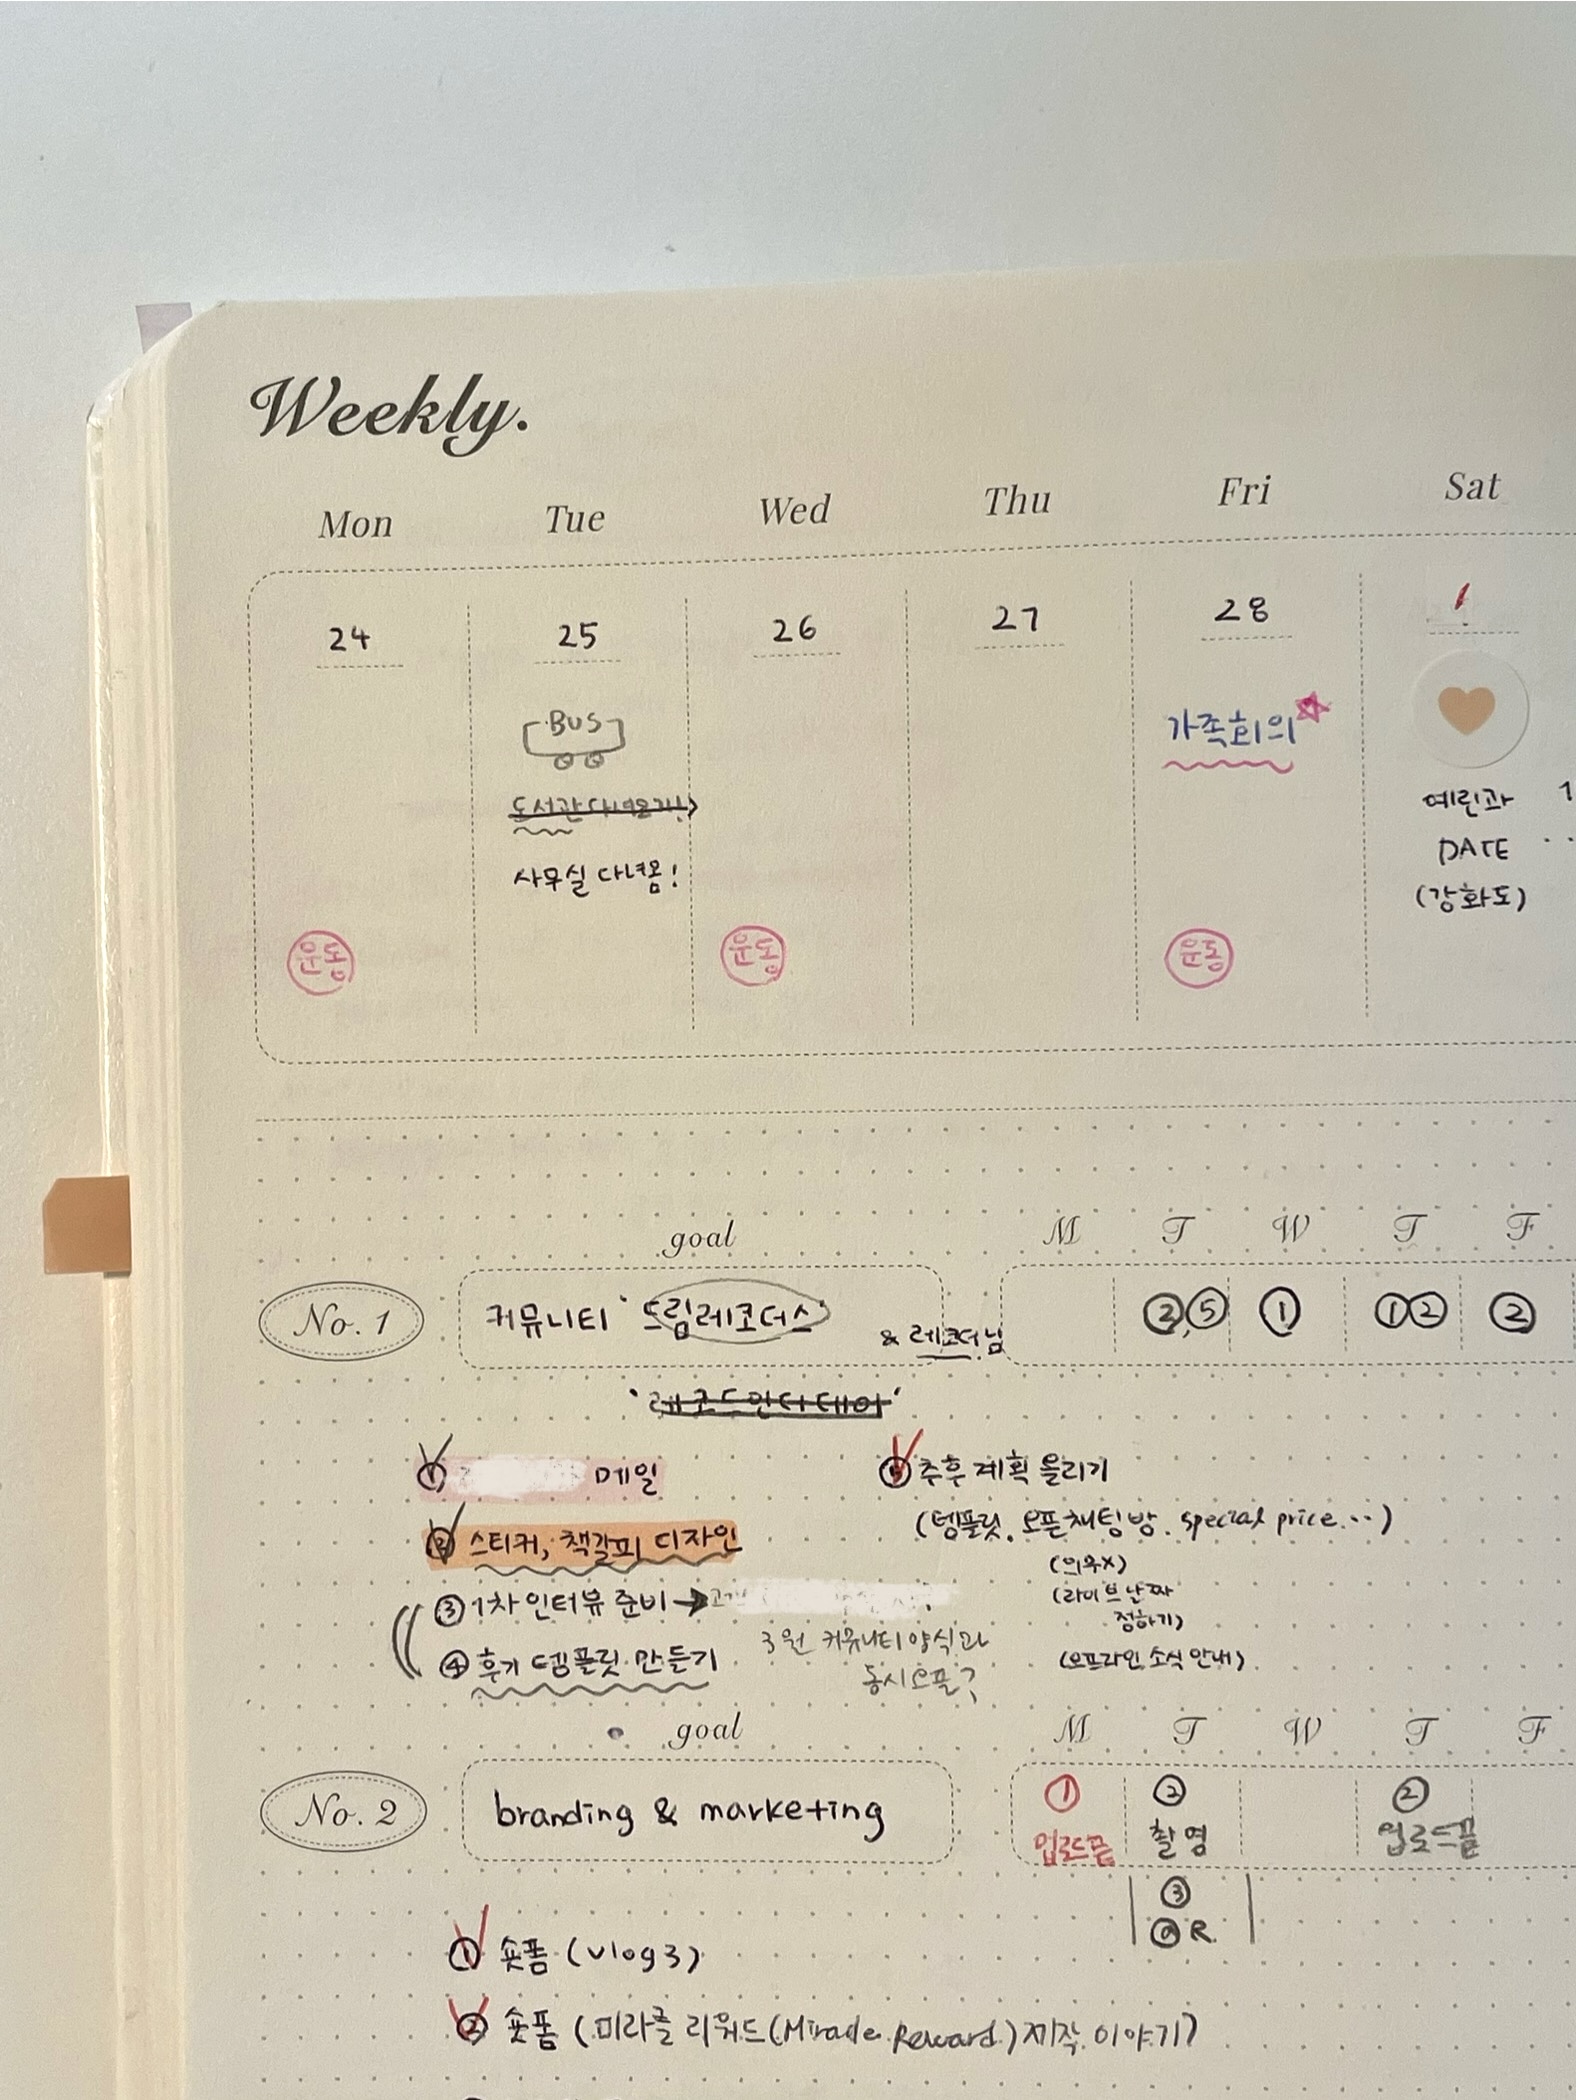 Weekly.
Mon Tue Wed Thu Fri Sat
24 25 26 27 28 1
BUS
가족회의
도서관 다녀오기!
예린과
사무실 다녀옴!
DATE
(강화도)
운동 운동 운동
goal M T W T F
No. 1 커뮤니티 '드림레코더스' ②,⑤ ① ①② ②
& 레코더님
'레코드인더데이'
① 메일
⑤ 추후 계획 올리기
② 스티커, 책갈피 디자인
(템플릿, 오픈채팅방, special price...)
(의무X)
③ 1차 인터뷰 준비 →
(라이브 날짜
정하기)
3월 커뮤니티 양식과
④ 후기 템플릿 만들기
(오프라인 소식 안내)
동시오픈?
goal M T W T F
No. 2 branding & marketing ① ② ②
업로드끝 촬영 업로드끝
③
R.
① 숏폼 (vlog3)
② 숏폼 (미라클 리워드(Miracle Reward) 제작 이야기)